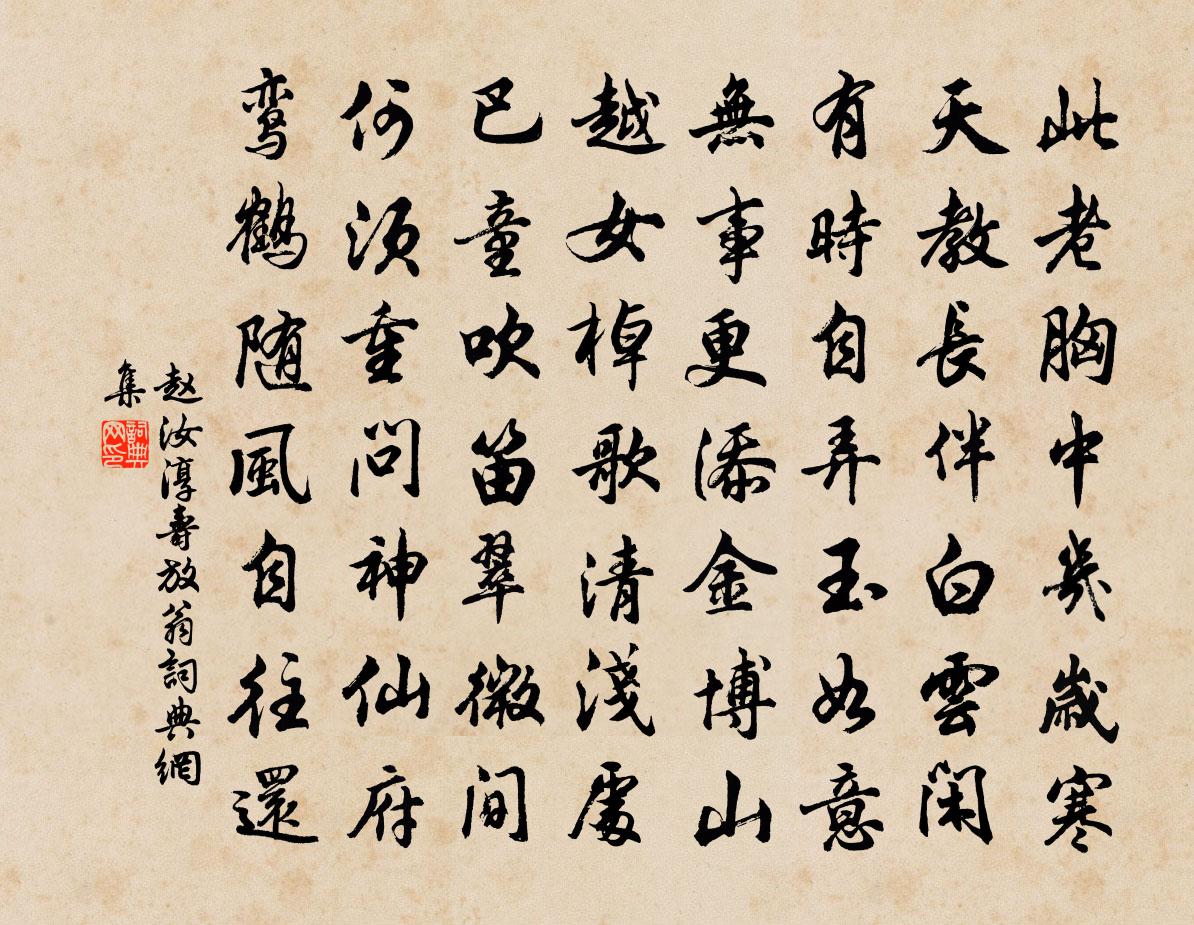 此老胸中幾歲寒
天教長伴白雲閑
有時自弄玉如意
無事更添金博山
越女棹歌清淺處
巴童吹笛翠微間
何須重問神仙府
鸾鶴随風自往還
赵汝淳壽放翁詞典網
集
詞典
网印